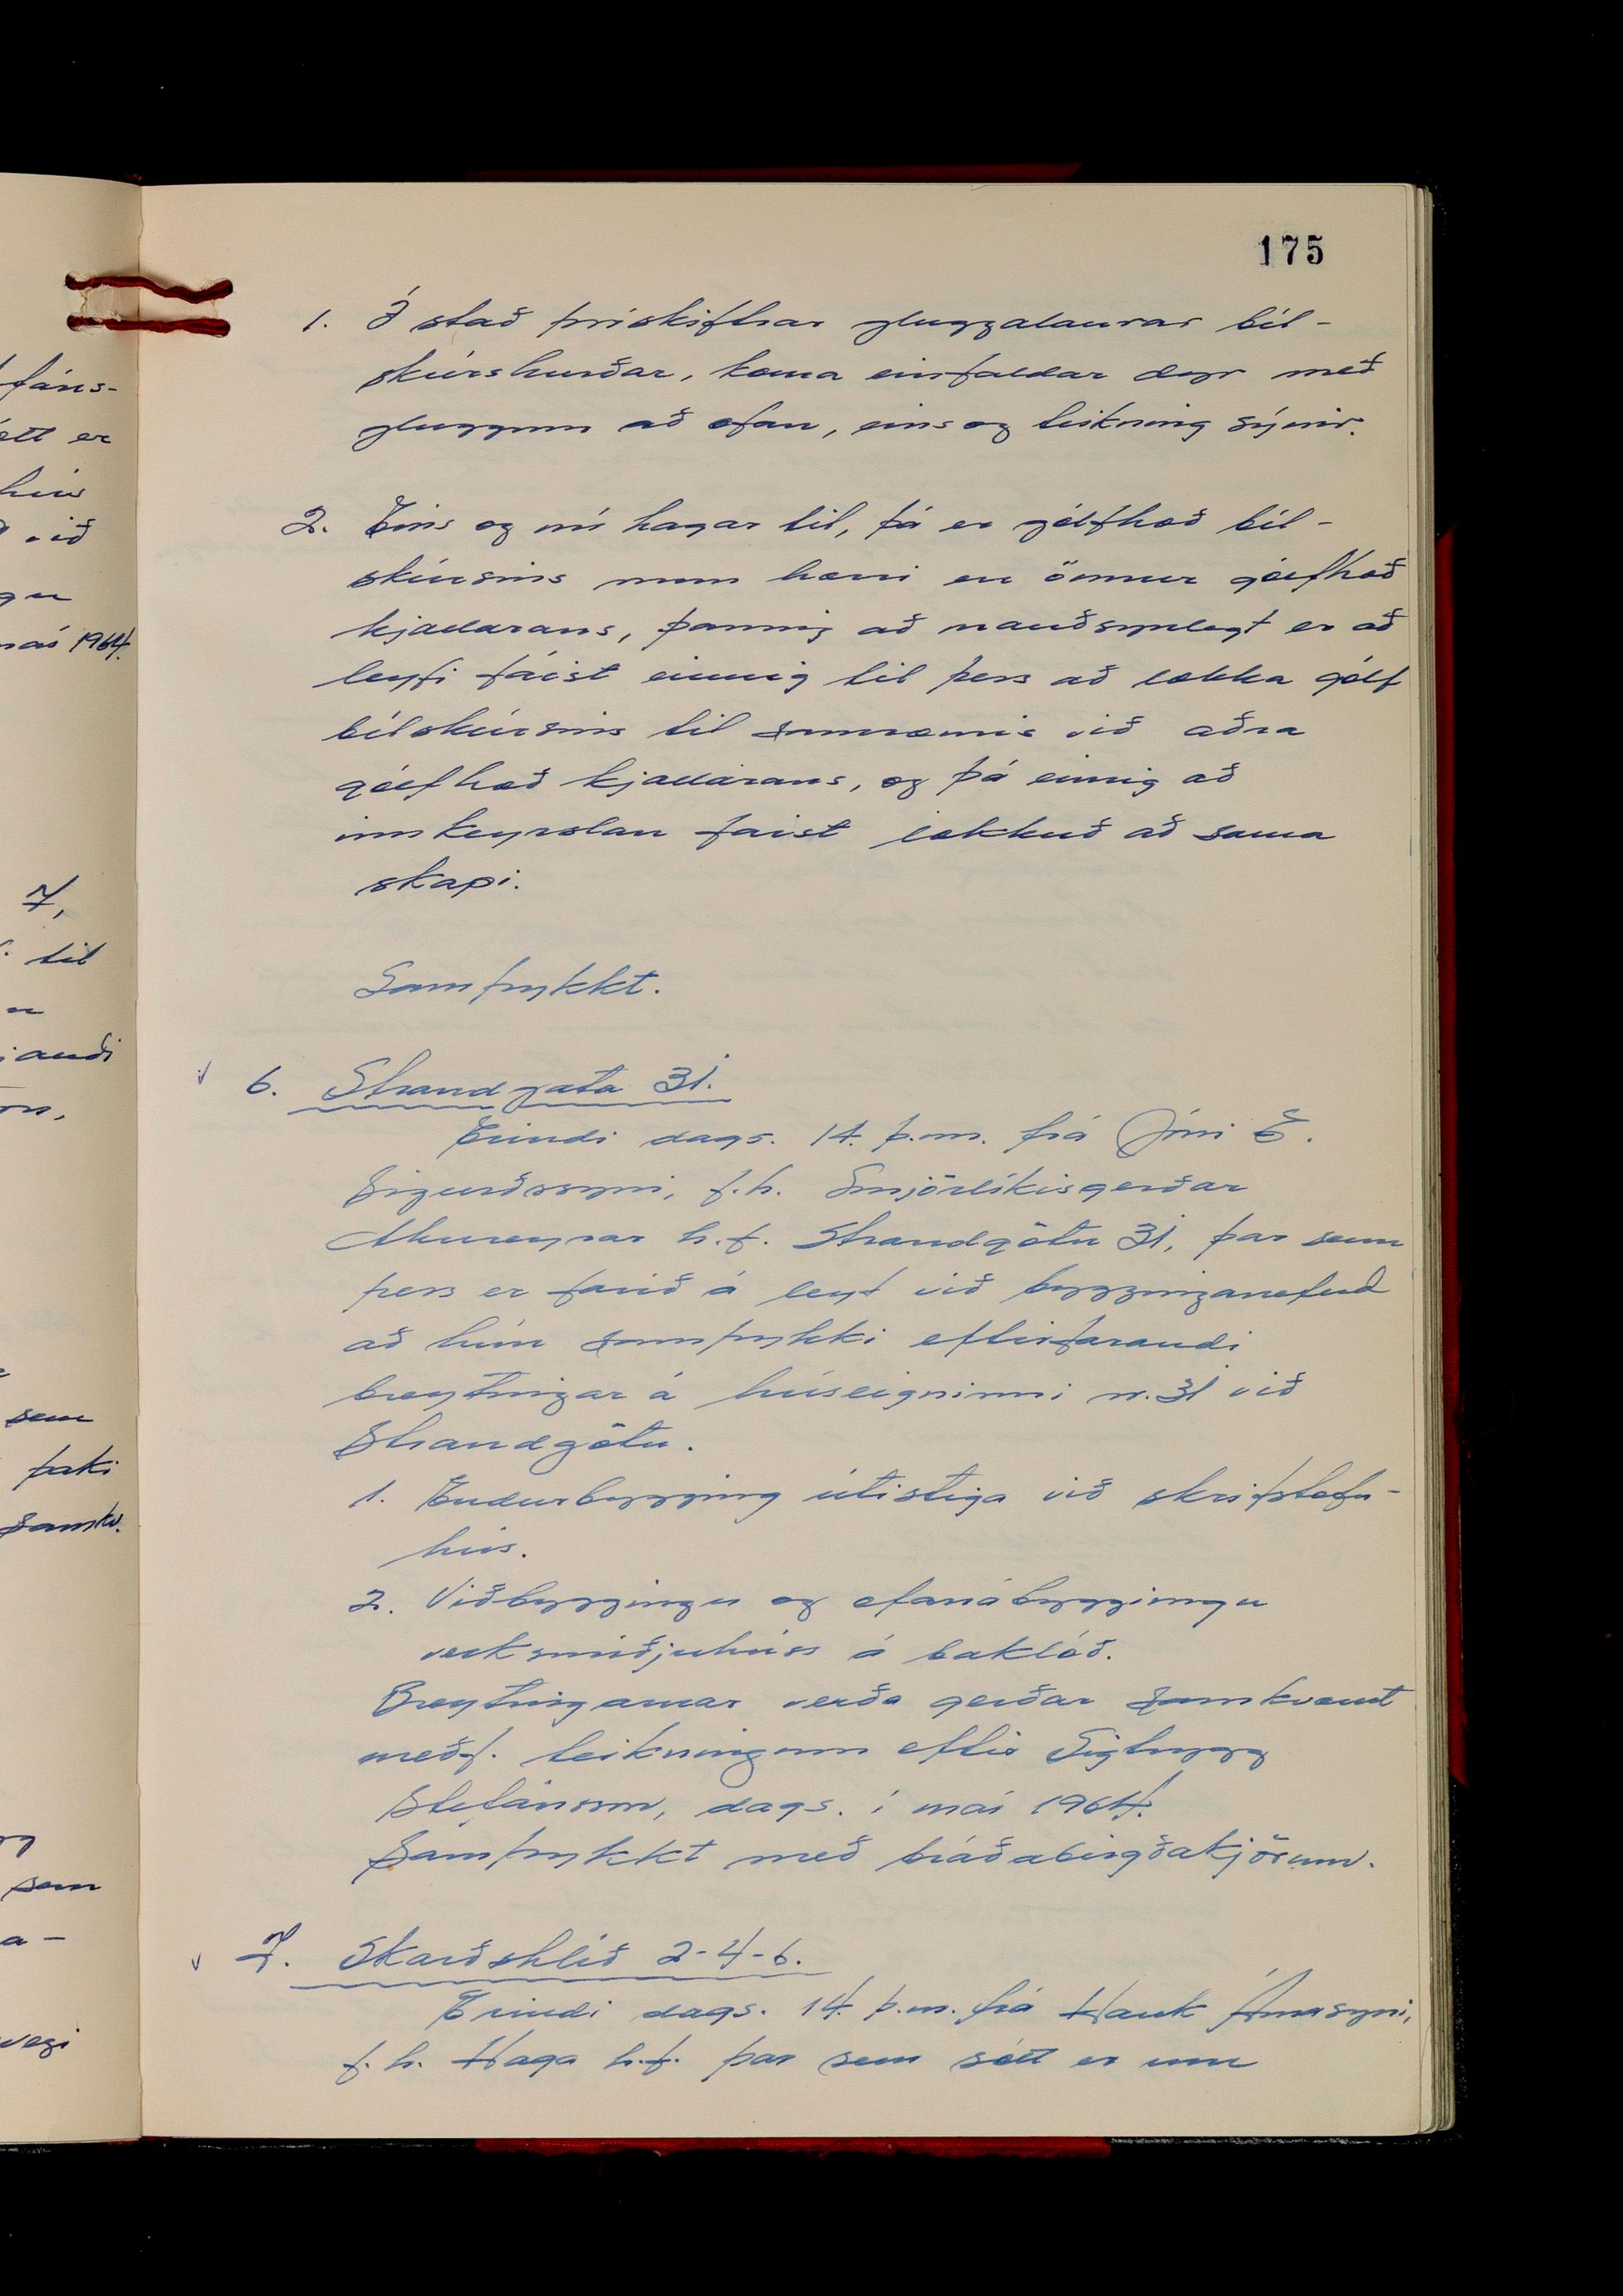 175
1. Í stað þrískiftrar gluggalausrar bíl-
skúrshurðar, koma einfaldar dyr með
gluggum að ofan, eins og teikning sýnir.
2. Eins og nú hagar til, þá er gólfhæð bíl-
skúrsins mun hærri en önnur gólfhæð
kjallarans, þannig að nauðsynlegt er að
leyfi fáist einnig til þess að lækka gólf
bílskúrsins til samræmis við aðra
gólfhæð kjallarans, og þá einnig að
innkeyrslan fáist lækkuð að sama
skapi.
Samþykkt.
6. Strandgata 31.
Erindi dags. 14. þ.m. frá Jóni E.
Sigurðssyni, f.h. Smjörlíkisgerðar
Akureyrar h.f. Strandgötu 31, þar sem
þess er farið á leyt við bygginganefnd
að hún samþykki eftirfarandi
breytingar á húseigninni nr. 31 við
Strandgötu.
1. Endurbygging útistiga við skrifstofu-
hús.
2. Viðbyggingu og ofanábyggingu
verksmiðjuhúss á baklóð.
Breytingarnar verða gerðar samkvæmt
meðf. teikningum eftir Sigtrygg
Stefánsson, dags. í maí 1964.
Samþykkt með bráðabirgðakjörum.
7. Skarðshlíð 2-4-6.
Erindi dags. 14. þ.m. frá Hauk Árnasyni,
f.h. Haga h.f. þar sem sótt er um